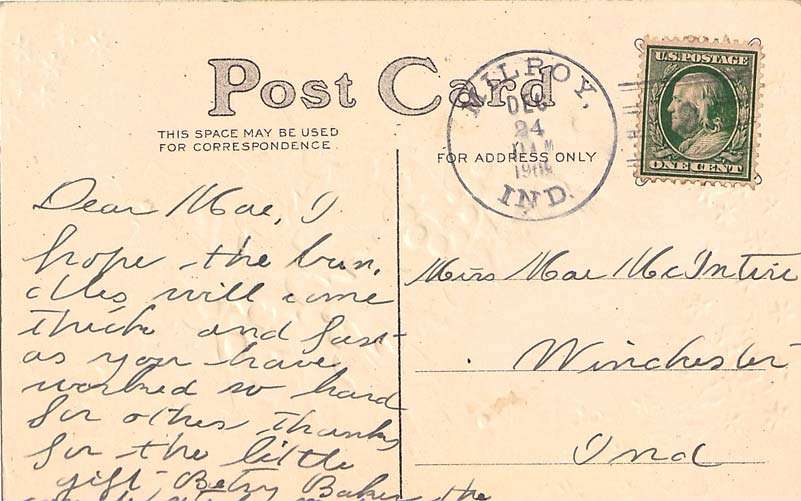 Post Card
THIS SPACE MAY BE USED
FOR CORRESPONDENCE.
FOR ADDRESS ONLY
MILROY,
DEC
24
11 AM
190
IND.
U.S. POSTAGE
ONE CENT
Dear Mae, I
hope the bun,
dles will come
thick and fast
as you have
worked so hard
for others thanks
for the little
gift Betsy Baker the
Miss Mae McIntire
Winchester
Ind